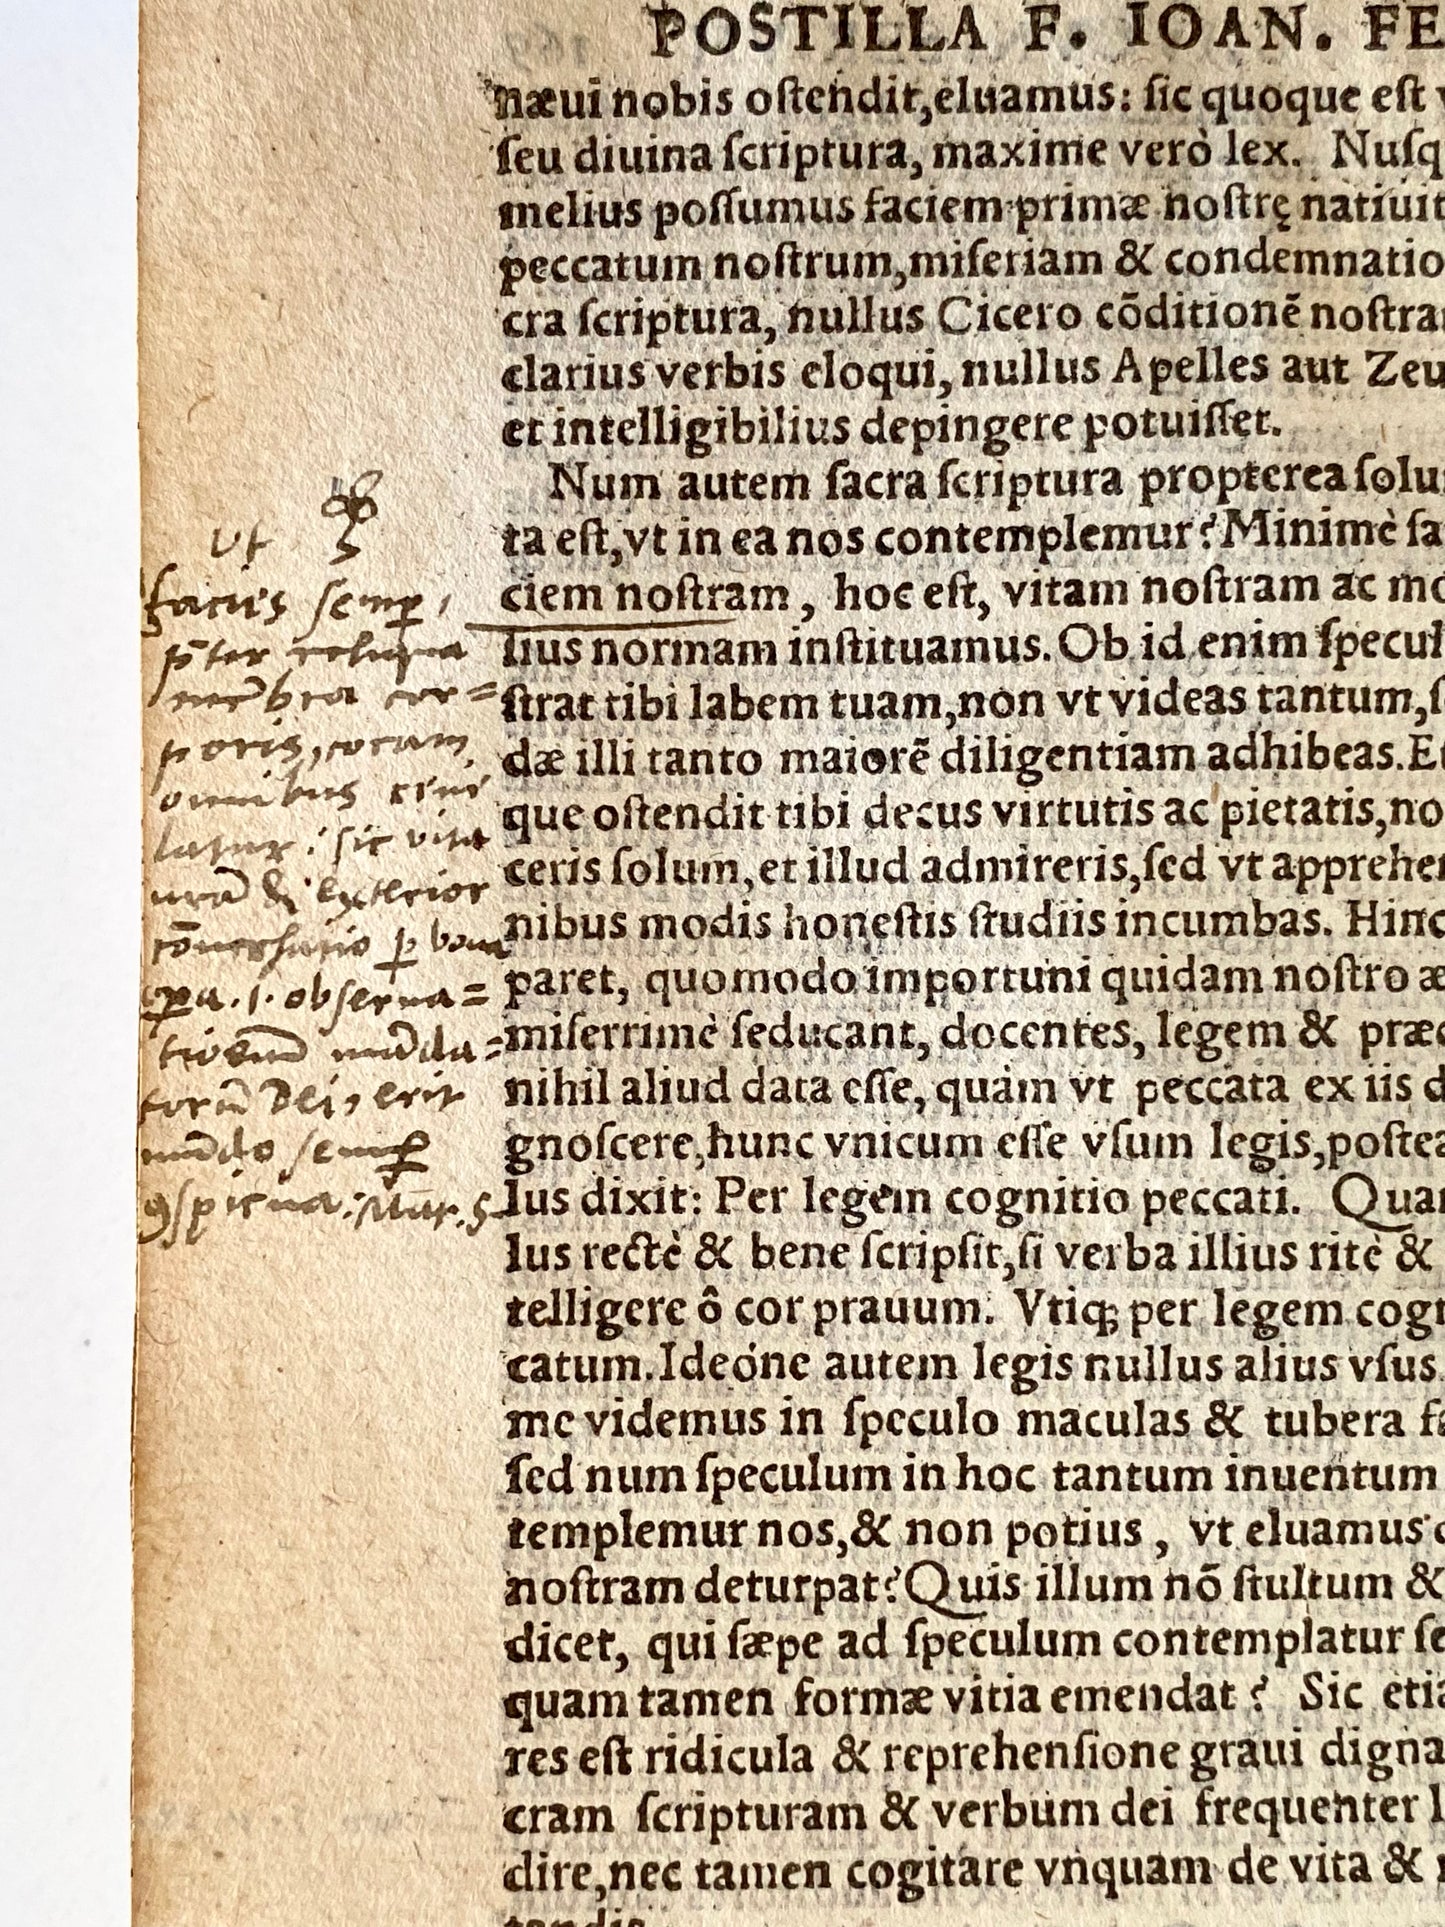 POSTILLA F. IOAN. FE
næui nobis oſtendit,eluamus: ſic quoque eſt v
ſeu diuina ſcriptura, maxime verò lex. Nuſq
melius poſſumus faciem primæ noſtrę natiuit
peccatum noſtrum,miſeriam & condemnatio
cra ſcriptura, nullus Cicero cõditionẽ noſtra
clarius verbis eloqui, nullus Apelles aut Zeu
et intelligibilius depingere potuiſſet.
Num autem ſacra ſcriptura propterea ſolu
ta eſt,vt in ea nos contemplemur? Minimè ſa
ciem noſtram, hoc eſt, vitam noſtram ac mo
lius normam inſtituamus. Ob id enim ſpecul
ſtrat tibi labem tuam,non vt videas tantum,ſ
dæ illi tanto maiorẽ diligentiam adhibeas.Et
que oſtendit tibi decus virtutis ac pietatis,no
ceris ſolum,et illud admireris,ſed vt apprehen
nibus modis honeſtis ſtudiis incumbas. Hinc
paret, quomodo importuni quidam noſtro æ
miſerrimè ſeducant, docentes, legem & præc
nihil aliud data eſſe, quàm vt peccata ex iis d
gnoſcere,hunc vnicum eſſe vſum legis,poſtea
lus dixit: Per legem cognitio peccati. Quan
lus rectè & bene ſcripſit,ſi verba illius ritè &
telligere ô cor prauum. Vtiq; per legem cogn
catum.Ideóne autem legis nullus alius vſus
me videmus in ſpeculo maculas & tubera fa
ſed num ſpeculum in hoc tantum inuentum
templemur nos,& non potius, vt eluamus
noſtram deturpat? Quis illum nõ ſtultum &
dicet, qui ſæpe ad ſpeculum contemplatur ſe
quam tamen formæ vitia emendat? Sic etia
res eſt ridicula & reprehenſione graui digna
cram ſcripturam & verbum dei frequenter l
dire,nec tamen cogitare vnquam de vita &
tandis
ut
facies semp
p̄ter reliqua
mẽbra cor=
poris, coram
omnibus reue
latur: sic vita
nr̃a & exterior
cõuersatio p bona
opa .i. obserua=
tionem mãda=
torũ Dei, erit
mũdo semp
ꝯspicua: Mat. 5